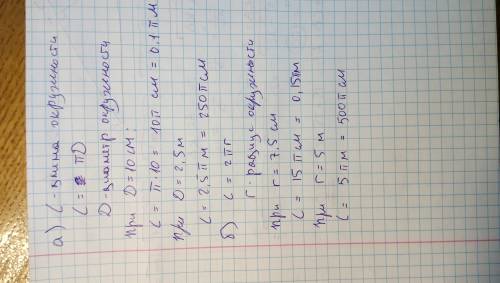 а) C - длина окружности
C = πD
D - диаметр окружности
при D = 10 см:
C = π·10 = 10π см = 0.1 π м
при D = 2,5 м
C = 2.5 π м = 250 π см
б) C = 2πr
r - радиус окружности
при r = 7.5 см
C = 15 π см = 0,15 π м
при r = 5 м
C = 5 π м = 500 π см